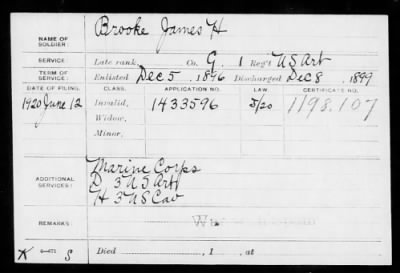 NAME OF SOLDIER: Brooke James H
SERVICE: Late rank, Co. G. 1 Reg't US Art
TERM OF SERVICE: Enlisted Dec 5, 1896 Discharged Dec 8, 1899
DATE OF FILING. CLASS. APPLICATION NO. LAW. CERTIFICATE NO.
1920 June 12 Invalid, 1433596 5/20 1198.107
Widow,
Minor,
ADDITIONAL SERVICES: Marine Corps
D 3 US Art
H 3 US Cav
REMARKS:
Died , 1 , at